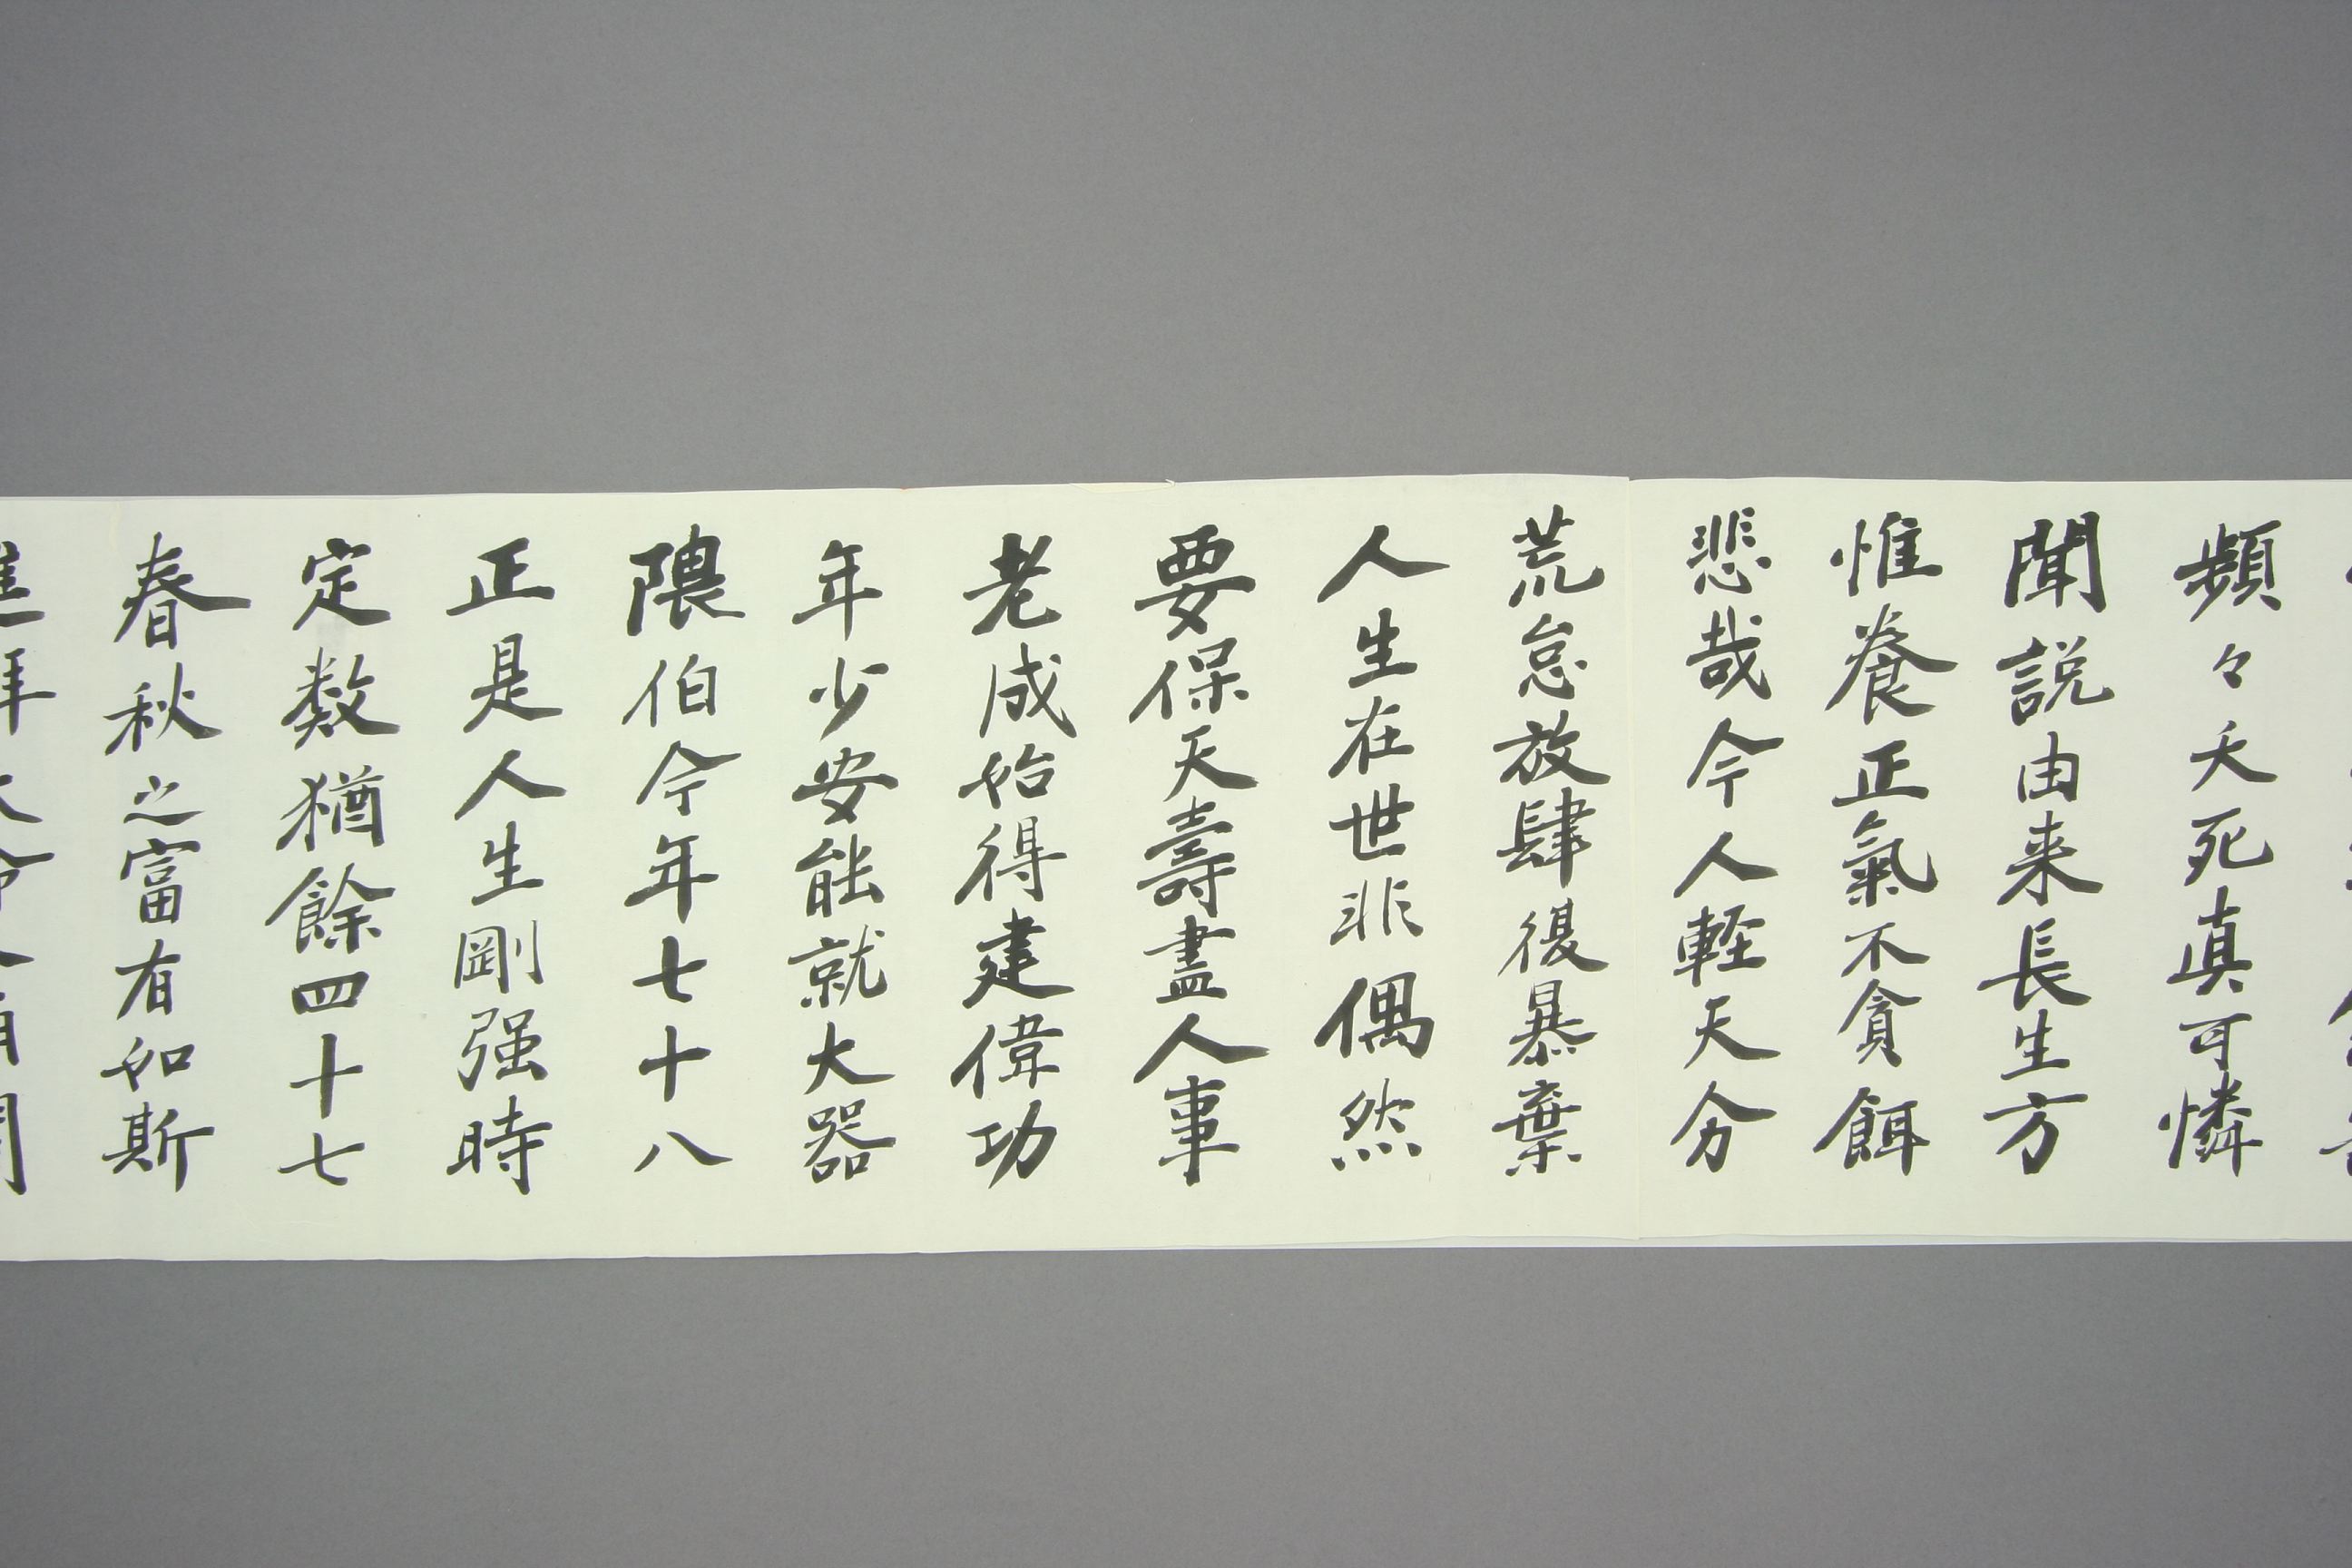 頻々夭死真可憐
聞説由来長生方
惟養正氣不貪餌
悲哉今人輕天分
荒怠放肆復暴棄
人生在世非偶然
要保天壽盡人事
老成始得建偉功
年少安能就大器
隈伯今年七十八
正是人生剛强時
定数猶餘四十七
春秋之富有如斯